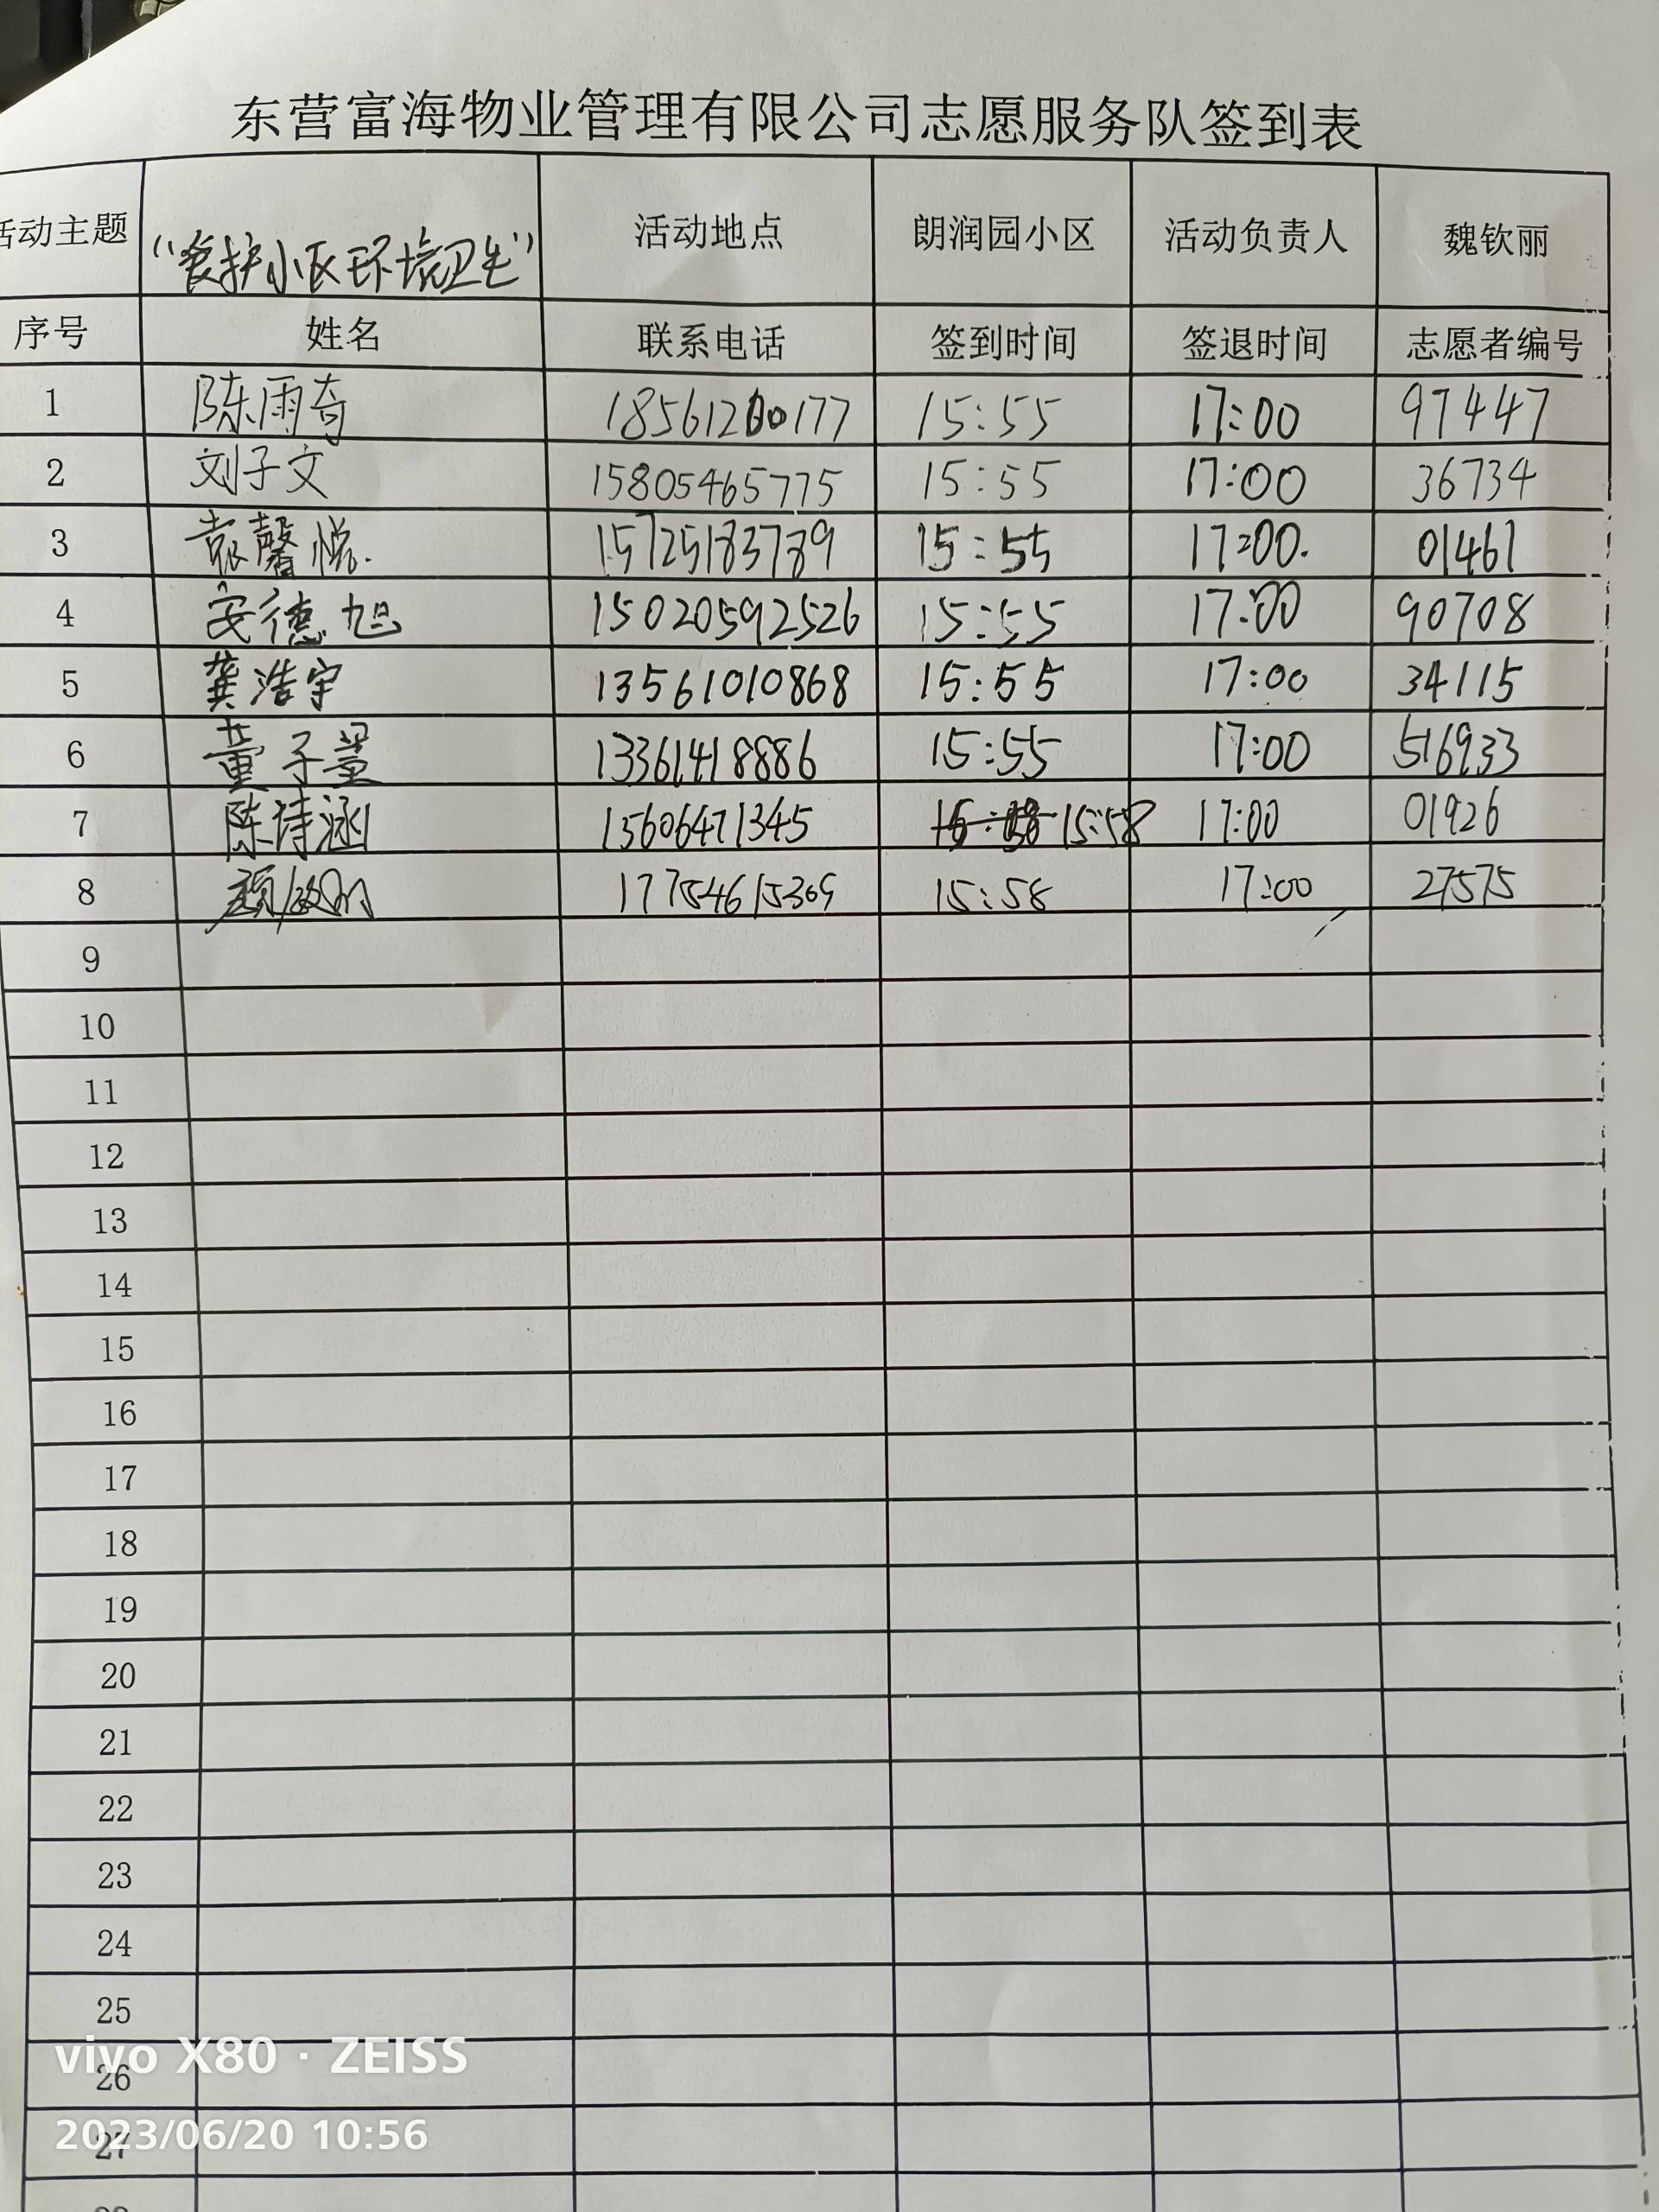 东营富海物业管理有限公司志愿服务队签到表
活动主题 “护小区环境卫生” 活动地点 朗润园小区 活动负责人 魏钦丽
序号 姓名 联系电话 签到时间 签退时间 志愿者编号
1 陈雨奇 18561200177 15:55 17:00 97447
2 刘子文 15805465775 15:55 17:00 36734
3 袁馨悦. 15725183789 15:55 17:00. 01461
4 安德旭 15020592526 15:55 17:00 90708
5 龚浩宇 13561010868 15:55 17:00 34115
6 董子量 13361418886 15:55 17:00 516933
7 陈诗涵 15606471345 15:58 17:00 01926
8 颜 17754615309 15:58 17:00 27575
9
10
11
12
13
14
15
16
17
18
19
20
21
22
23
24
25
vivo X80 · ZEISS
26
2023/06/20 10:56
27